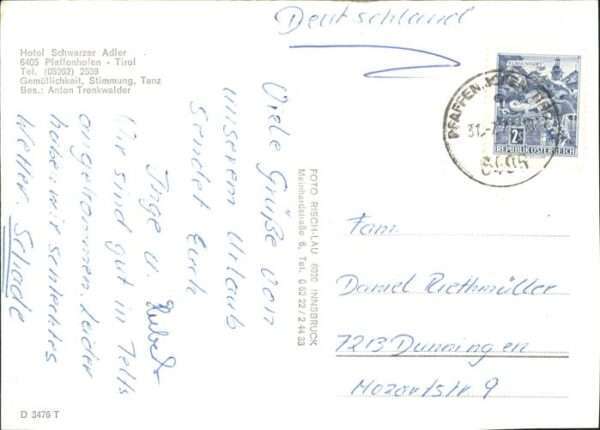 Hotel Schwarzer Adler
6405 Pfaffenhofen - Tirol
Tel. (05262) 2539
Gemütlichkeit, Stimmung, Tanz
Bes.: Anton Trenkwalder
Deutschland
REPUBLIK ÖSTERREICH
Viele Grüße von
unserem Urlaub
sendet Eure
Inge u.
Wir sind gut in Telfs
angekommen. Leider
haben wir schlechtes
Wetter. Schade
FOTO RISCH-LAU 6020 INNSBRUCK
Meinhardstraße 6, Tel. 0 52 22 / 2 44 33
Fam.
Daniel Riethmüller
7213 Dunningen
Mozartstr. 9
D 3476 T